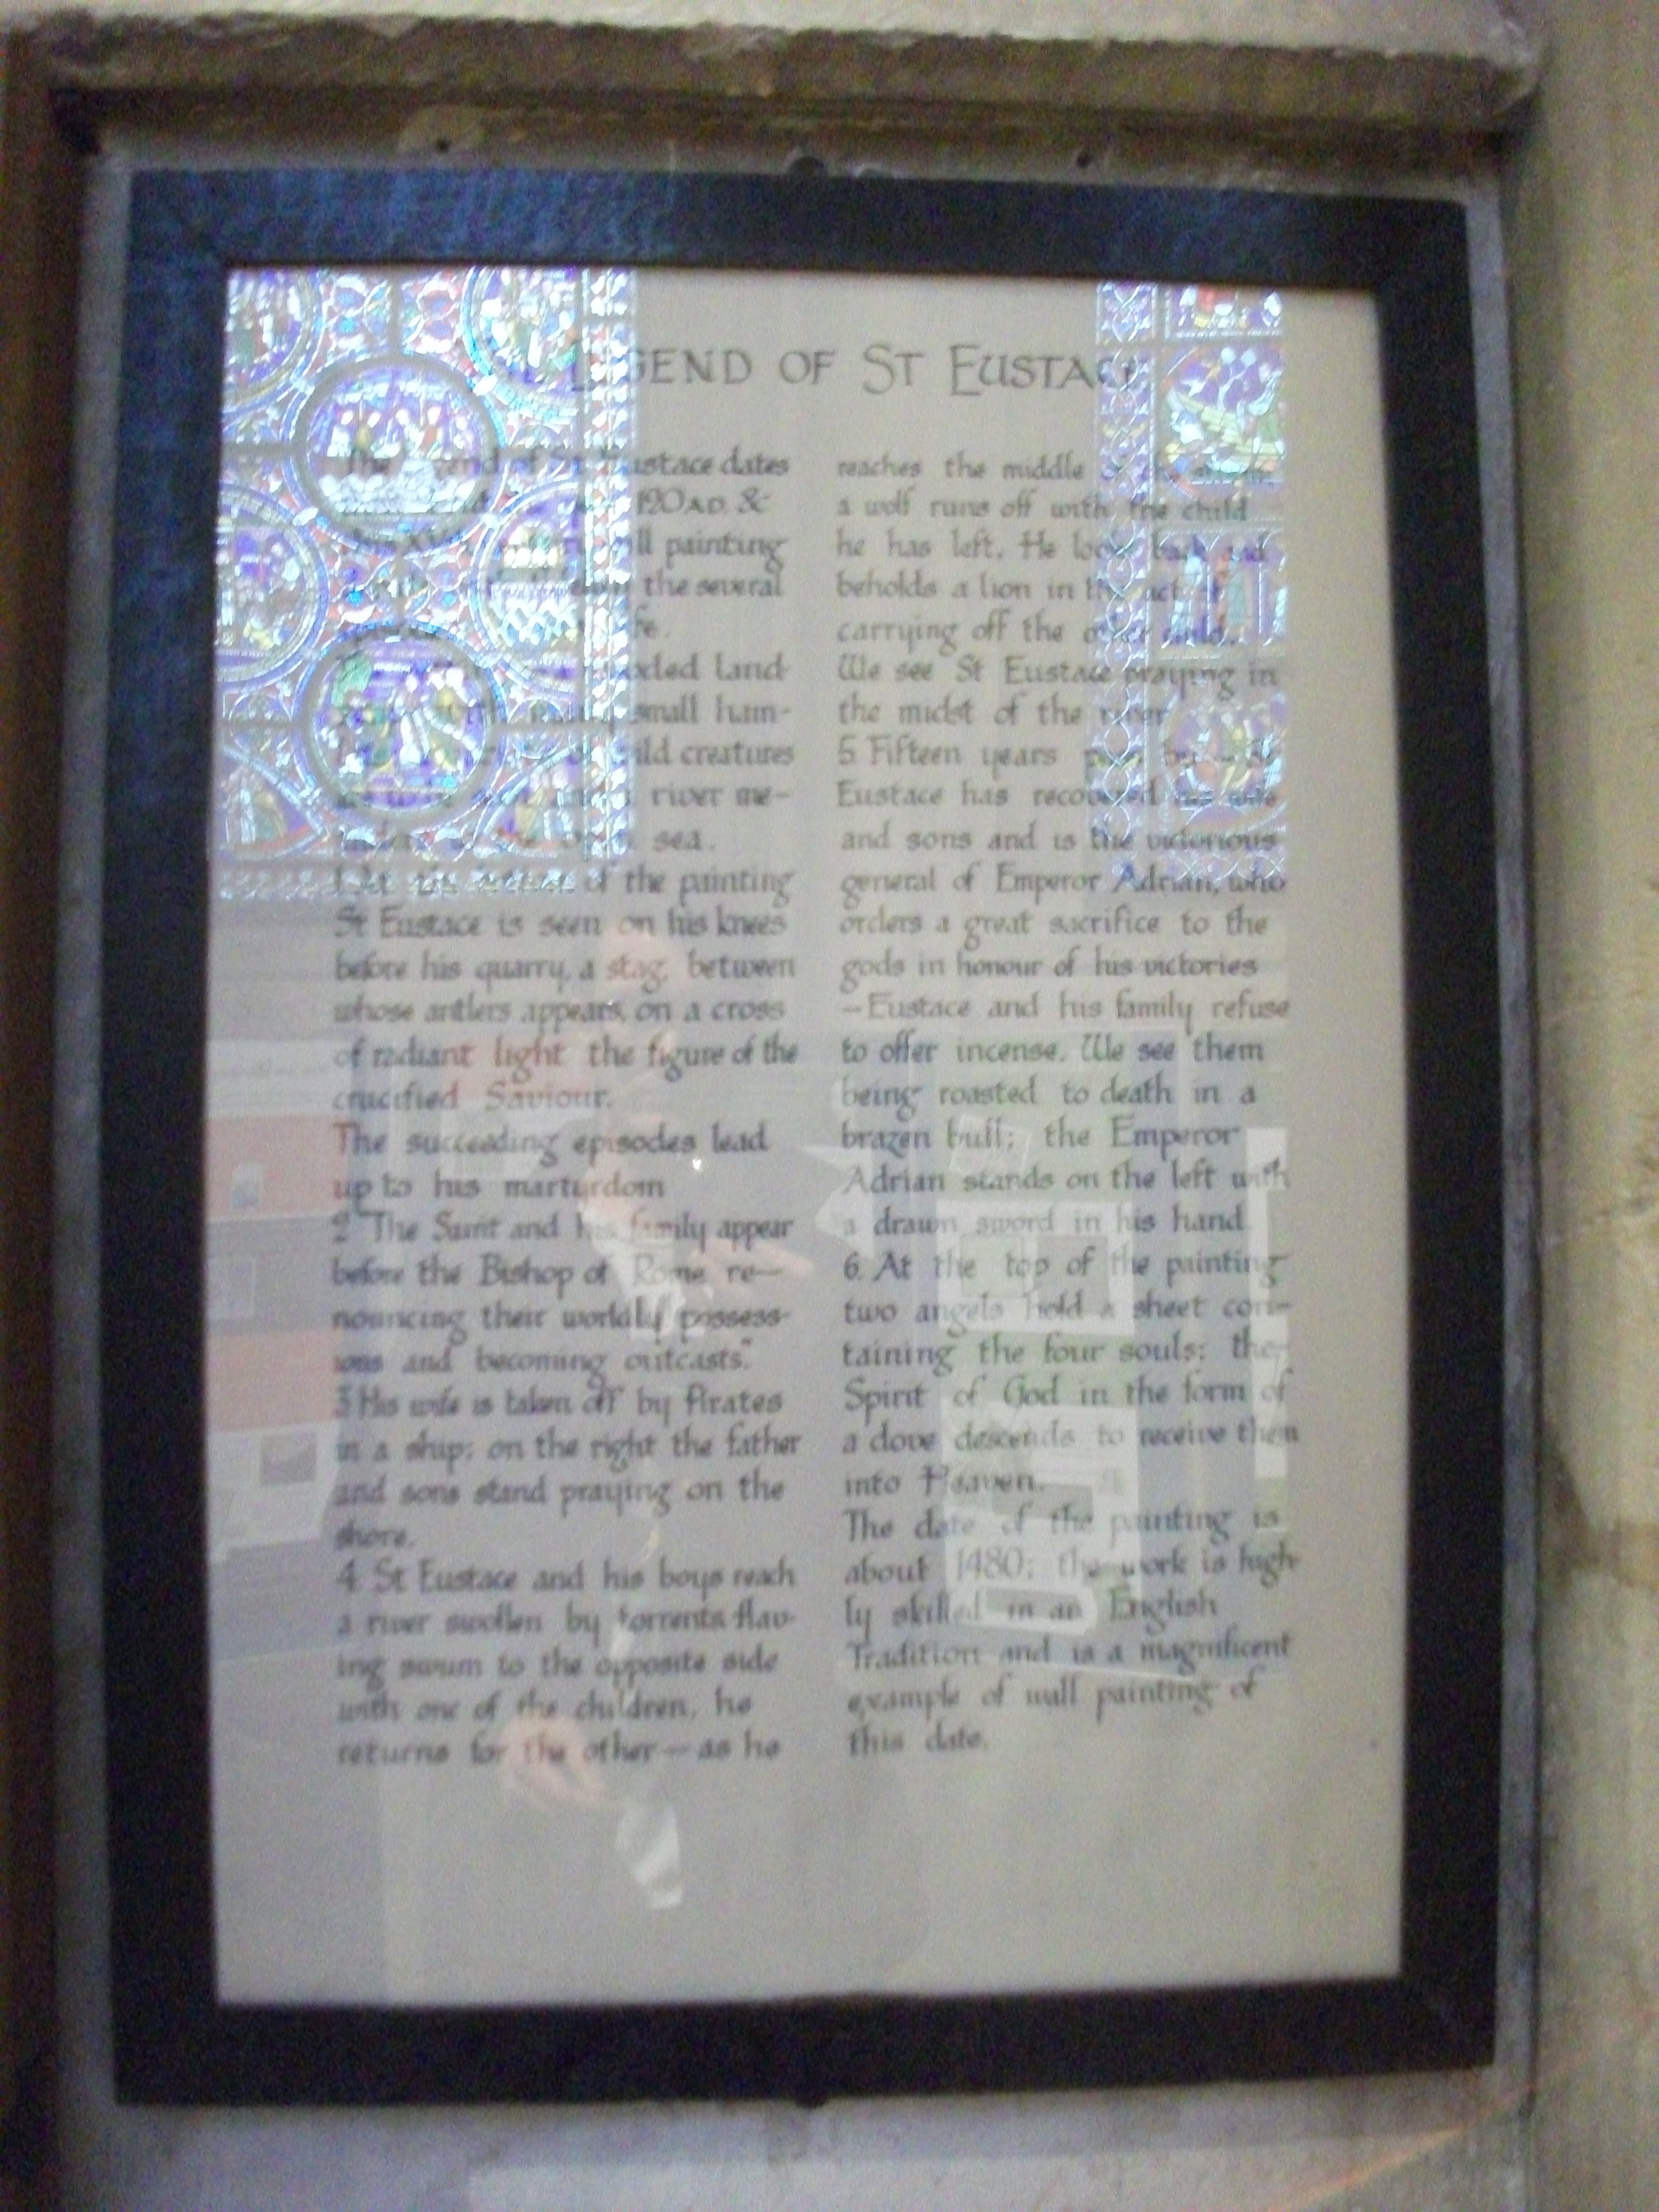 LEGEND OF ST EUSTACE
The Legend of St Eustace dates
120 AD. &
wall painting
the several
wooded land-
small ham-
wild creatures
river me-
sea.
1 At the of the painting
St Eustace is seen on his knees
before his quarry, a stag, between
whose antlers appears, on a cross
of radiant light the figure of the
crucified Saviour.
The succeeding episodes lead
up to his martyrdom
2 "The Saint and his family appear
before the Bishop of Rome re-
nouncing their worldly possess-
ions and becoming outcasts."
3 His wife is taken off by Pirates
in a ship; on the right the father
and sons stand praying on the
shore.
4 St Eustace and his boys reach
a river swollen by torrents. Hav-
ing swum to the opposite side
with one of the children, he
returns for the other — as he
reaches the middle of the
a wolf runs off with the child
he has left. He looks back and
beholds a lion in the act of
carrying off the other child.
We see St Eustace praying in
the midst of the river
5 Fifteen years pass by — St
Eustace has recovered his wife
and sons and is the victorious
general of Emperor Adrian, who
orders a great sacrifice to the
gods in honour of his victories
— Eustace and his family refuse
to offer incense. We see them
being roasted to death in a
brazen bull; the Emperor
Adrian stands on the left with
a drawn sword in his hand.
6. At the top of the painting
two angels hold a sheet con-
taining the four souls: the
Spirit of God in the form of
a dove descends to receive them
into Heaven.
The date of the painting is
about 1480; the work is high-
ly skilled in an English
Tradition and is a magnificent
example of wall painting of
this date.